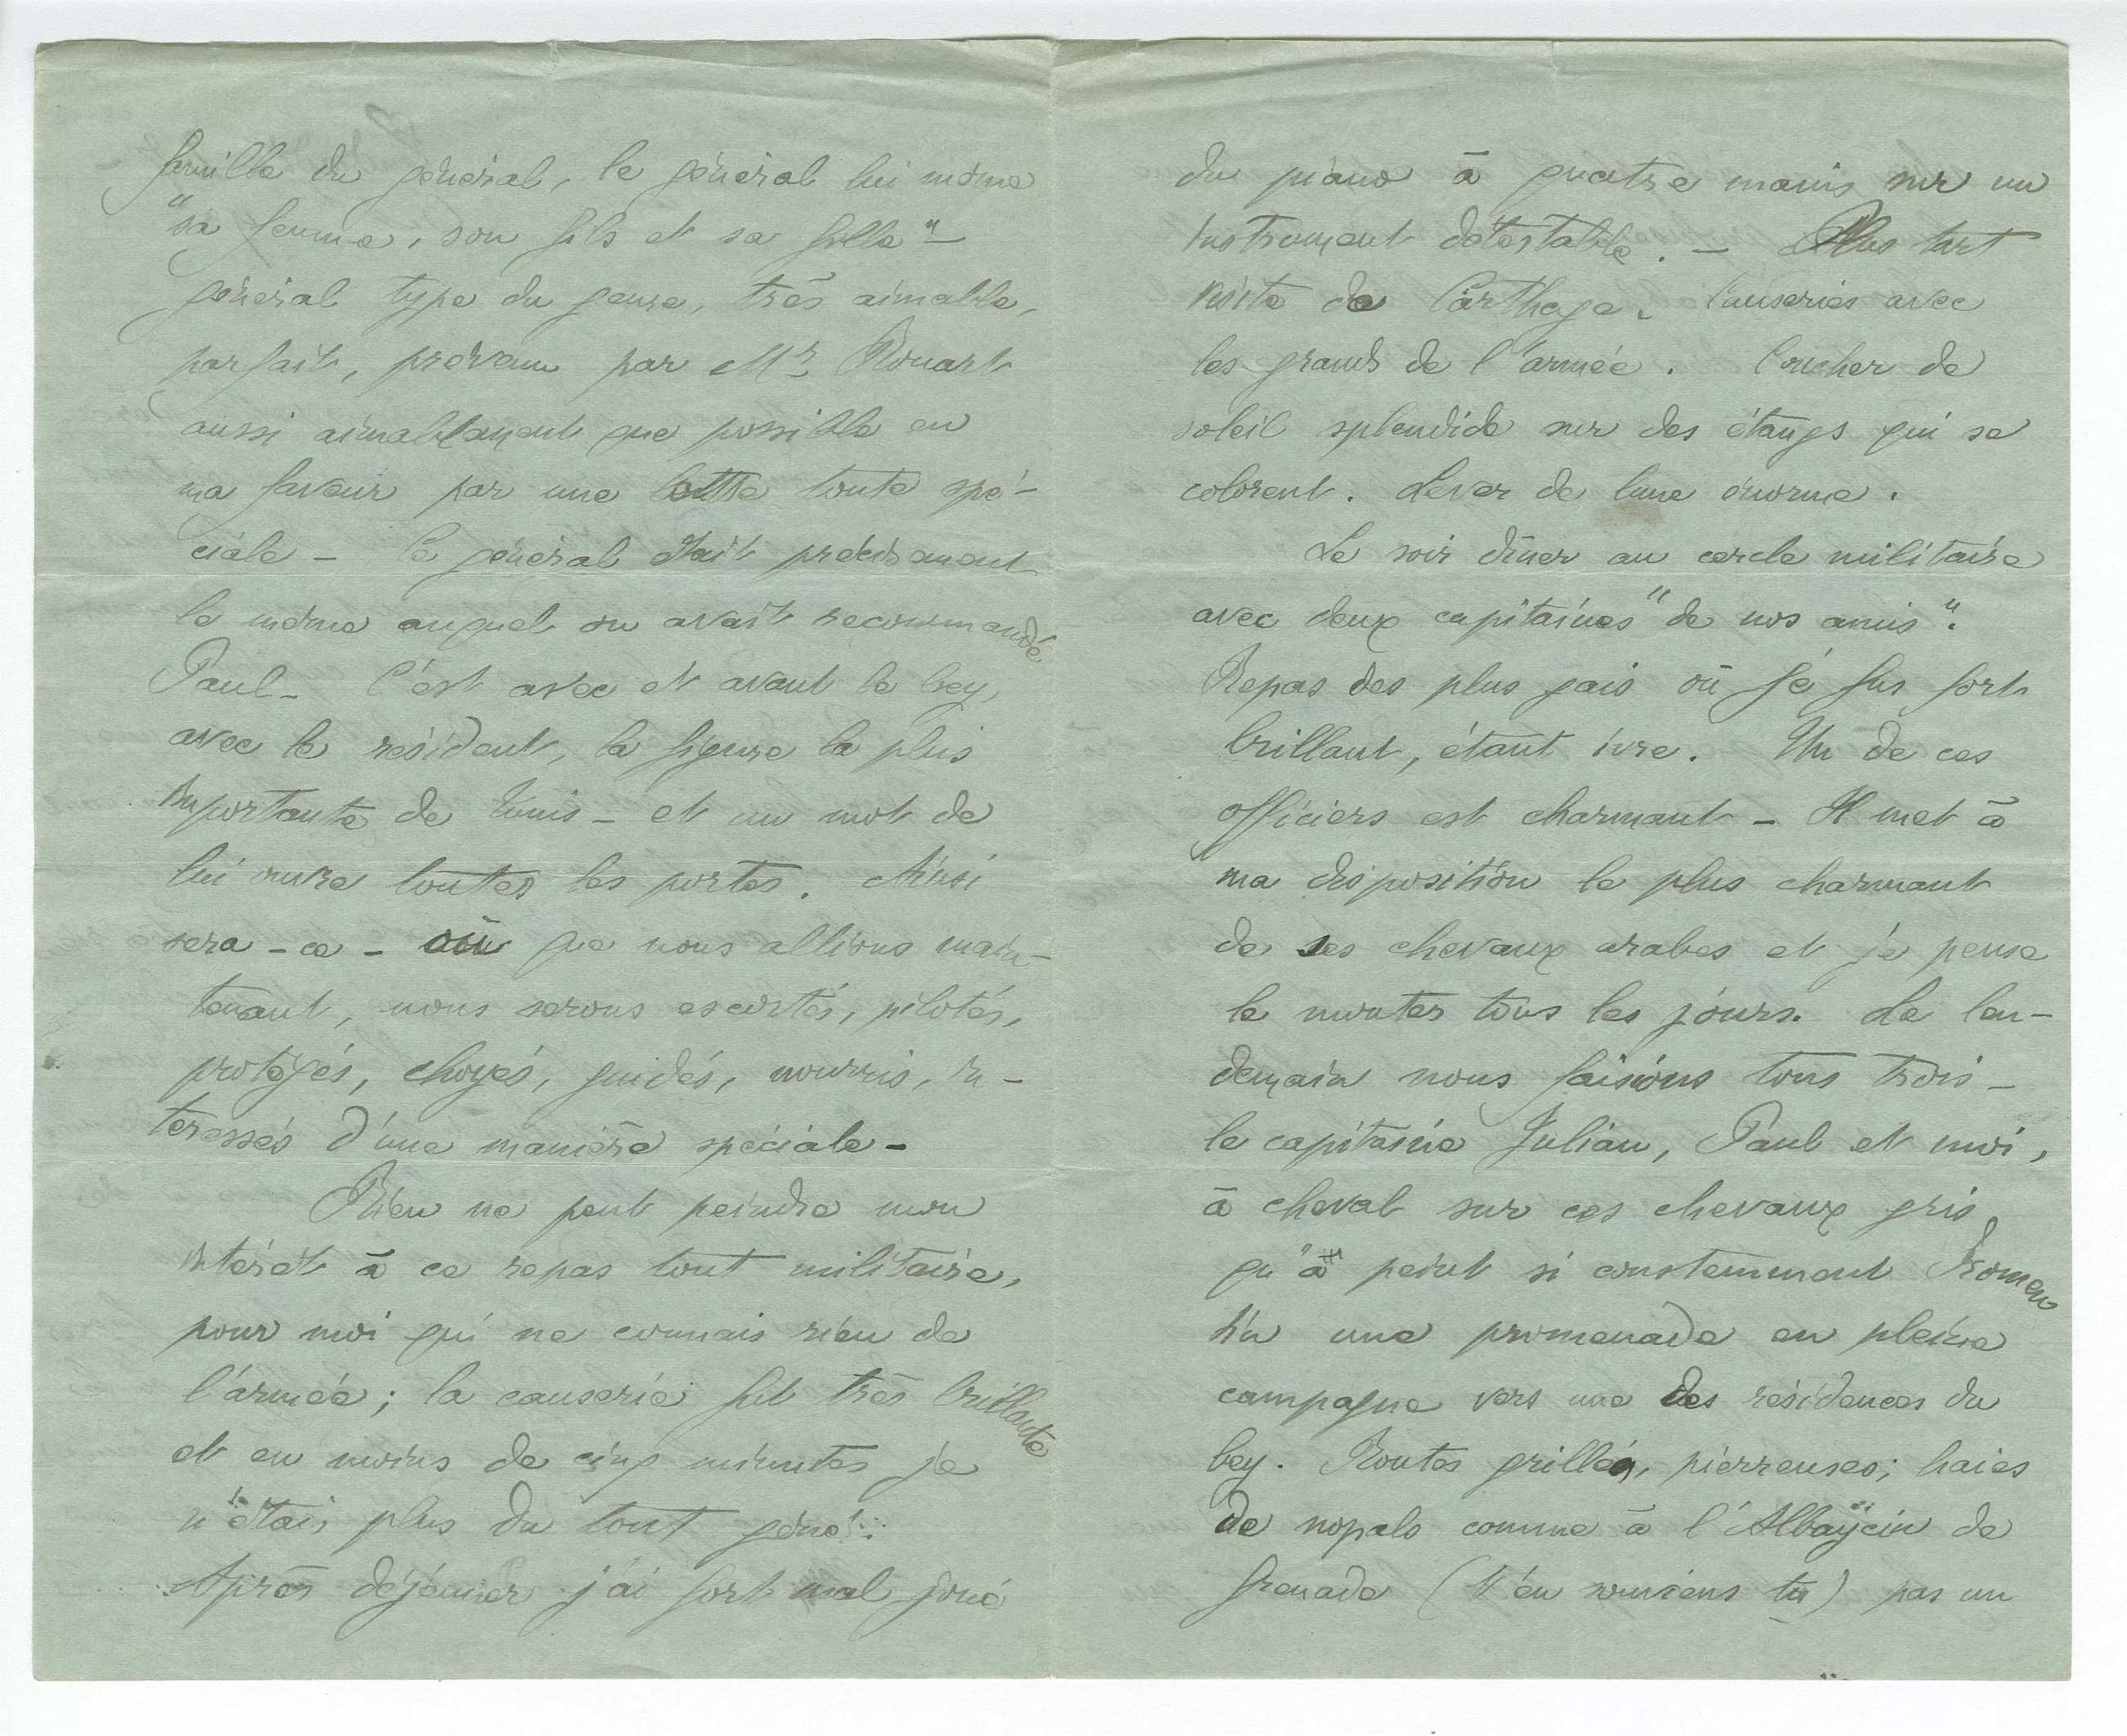 famille du général, le général lui même
"sa femme, son fils et sa fille" –
général type du genre, très aimable,
parfait, prévenu par Mr Rouart
aussi aimablement que possible en
ma faveur par une lettre toute spé-
ciale – le général était précisément
le même auquel on avait recommandé
Paul – C'est avec et avant le bey,
avec le résident, la figure la plus
importante de Tunis – et un mot de
lui ouvre toutes les portes. Ainsi
sera-ce – où que nous allions main-
tenant, nous serons escortés, pilotés,
protégés, choyés, guidés, nourris, in-
téressés d'une manière spéciale –
Rien ne peut peindre mon
intérêt à ce repas tout militaire,
pour moi qui ne connais rien de
l'armée ; la causerie fut très brillante
et en moins de cinq minutes je
n'étais plus du tout gêné...
Après déjeuner j'ai fort mal joué
du piano à quatre mains sur un
instrument détestable. – Plus tart
visite de Carthage. Causeries avec
les grands de l'armée. Coucher de
soleil splendide sur des étangs qui se
colorent. Lever de lune énorme.
Le soir dîner au cercle militaire
avec deux capitaines "de nos amis".
Repas des plus gais où je fus fort
brillant, étant ivre. Un de ces
officiers est charmant – Il met à
ma disposition le plus charmant
de ses chevaux arabes et je pense
le monter tous les jours. Le len-
demain nous faisions tous trois –
le capitaine Julian, Paul et moi,
à cheval sur ces chevaux gris
qu'a peint si constemment Fromen
tin une promenade en pleine
campagne vers une des résidences du
bey. Routes grillées, pierreuses ; haies
de nopals comme à l'Albaÿcin de
Grenade (t'en souviens tu) pas un